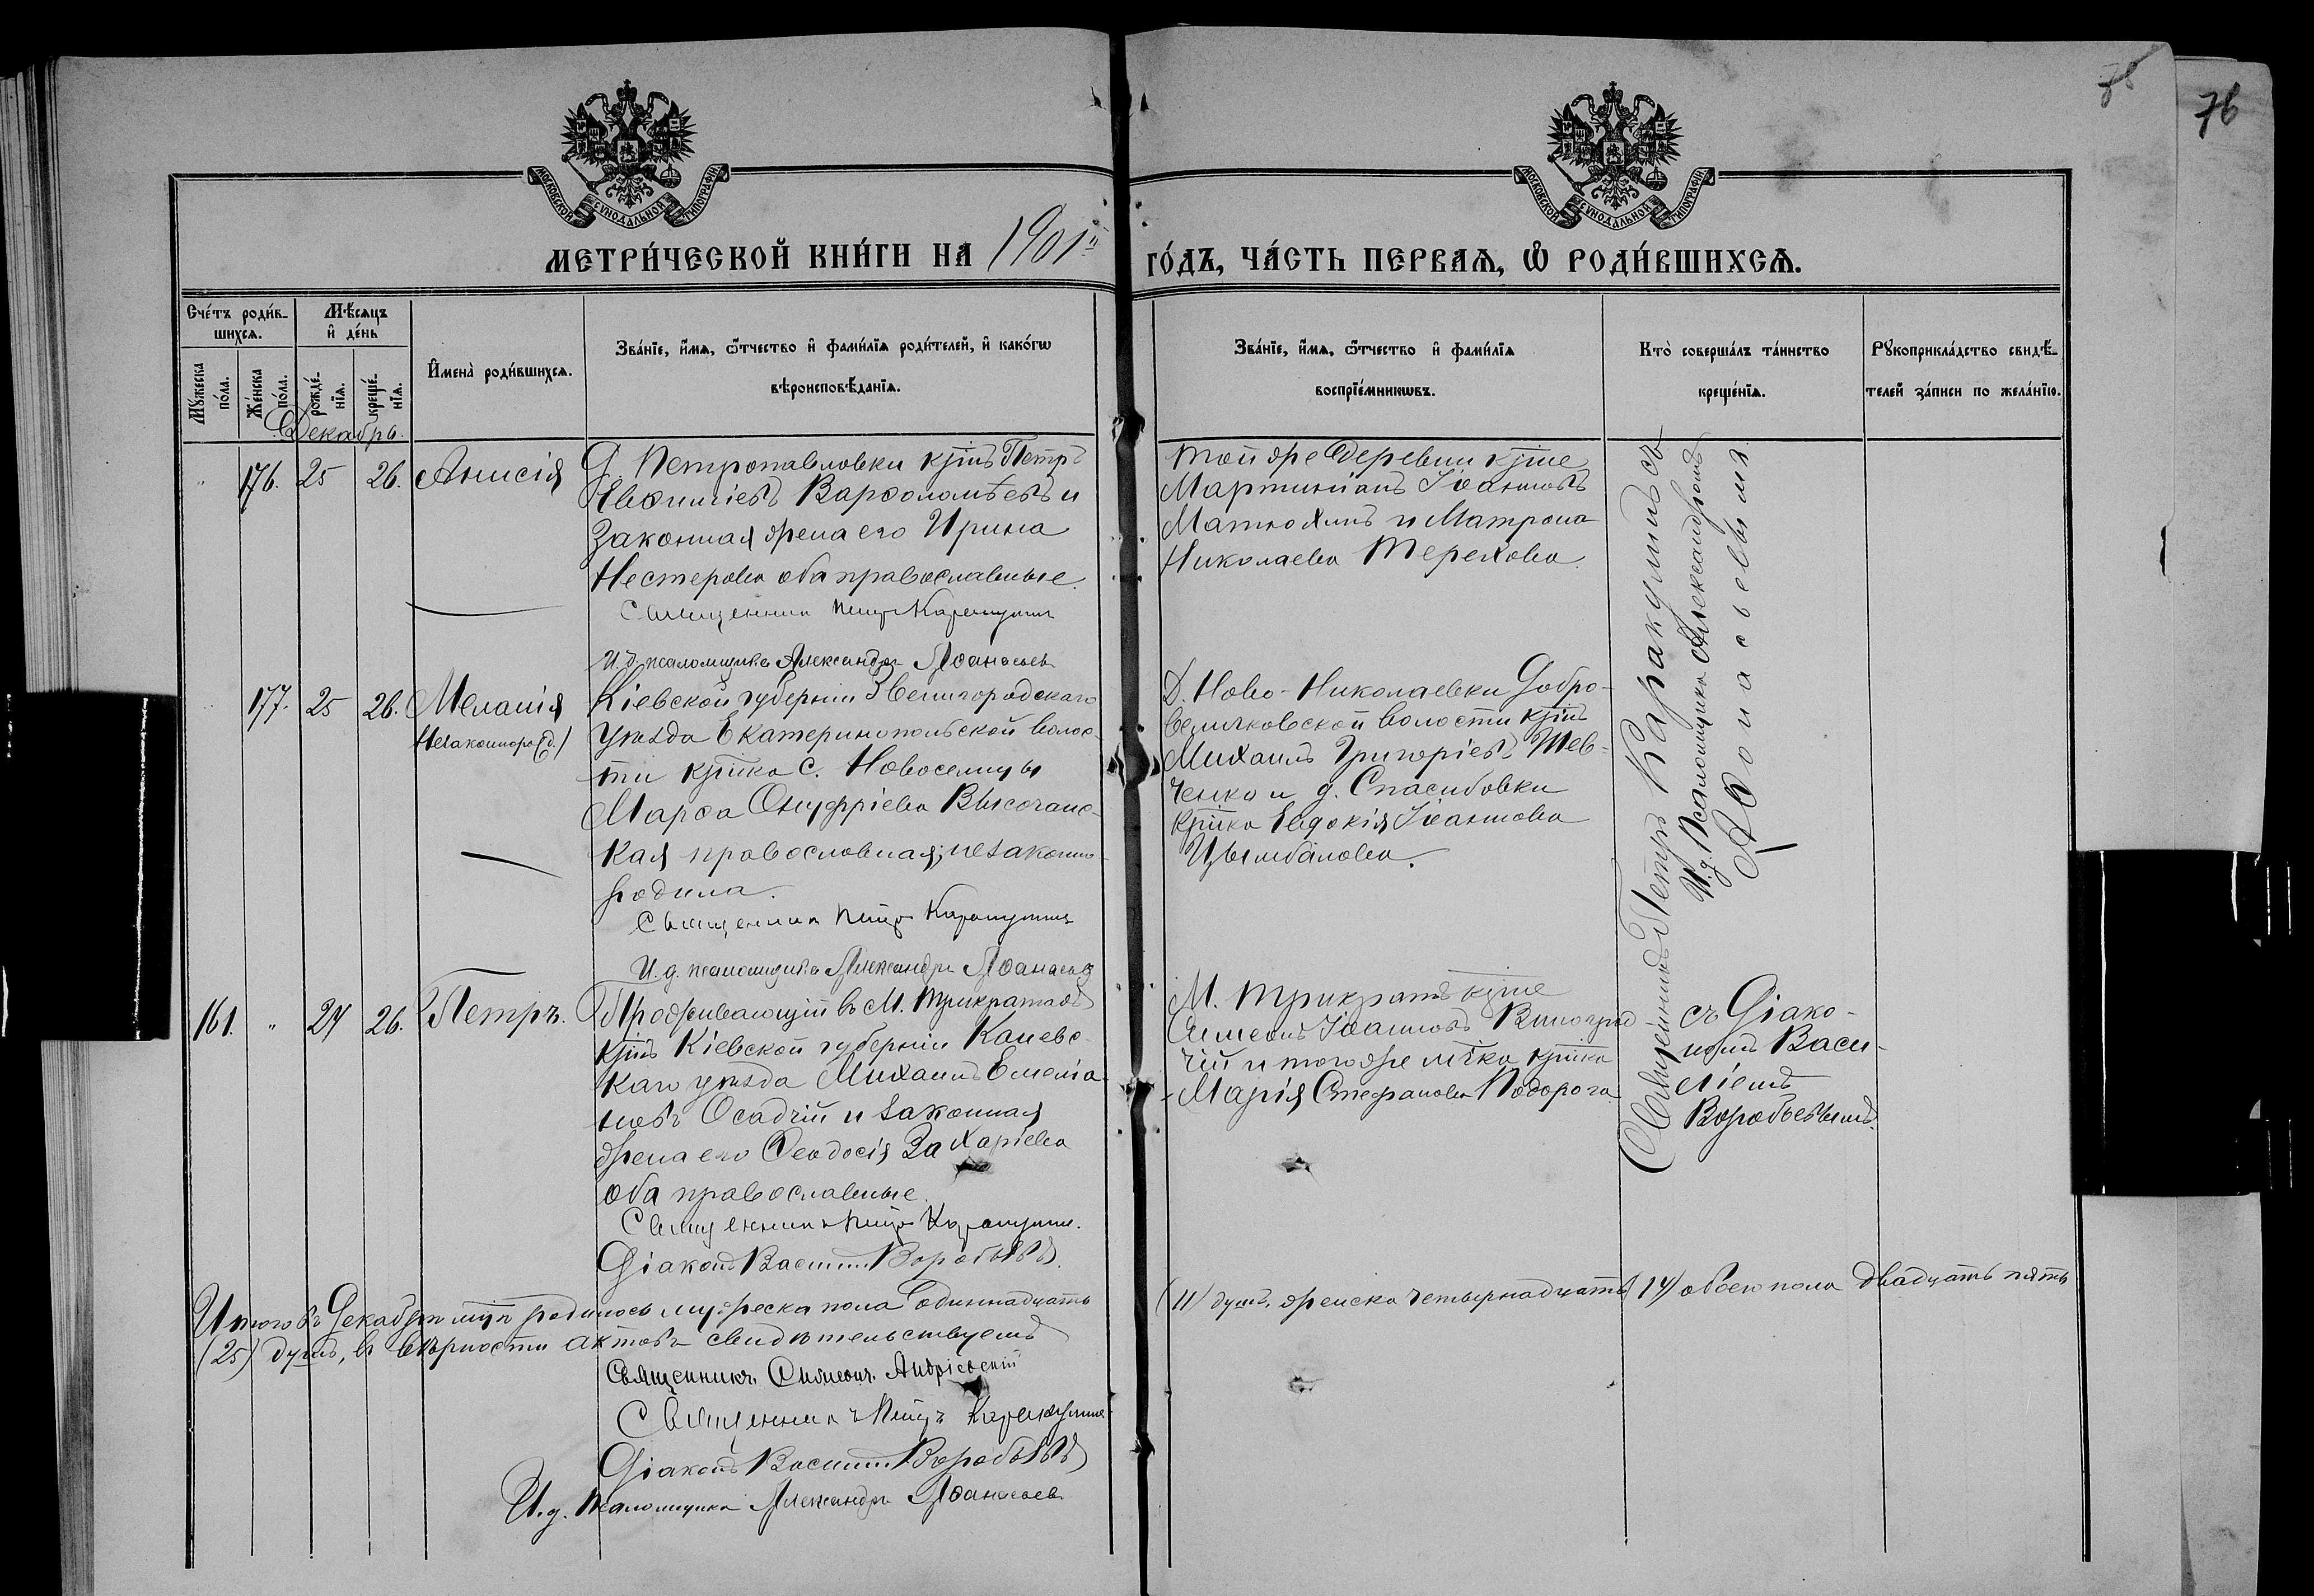 78
76
МОСКОВСКОЙ СѴНОДАЛЬНОЙ ТИПОГРАФІИ
МОСКОВСКОЙ СѴНОДАЛЬНОЙ ТИПОГРАФІИ
МЕТРИ́ЧЕСКОЙ КНИ́ГИ НА 1901й
ГО́ДЪ, ЧА́СТЬ ПЕРВАѦ, Ѡ҆ РОДИ́ВШИХСѦ.
Сче́тъ роди́в-
шихсѧ.
Мѣ́сѧцъ
и҆ де́нь
Мꙋ́жеска
по́ла.
Же́нска
по́ла.
рожде́-
нїѧ.
креще́-
нїѧ.
И҆мена̀ роди́вшихсѧ.
Зва́нїе, и҆́мѧ, ѻ҆́тчество и҆ фами́лїѧ роди́телей, и҆ како́гѡ
вѣроисповѣ́данїѧ.
Зва́нїе, и҆́мѧ, ѻ҆́тчество и҆ фами́лїѧ
воспрїе́мникѡвъ.
Кто̀ соверша́лъ та́инство
креще́нїѧ.
Рꙋкоприкла́дство свидѣ́-
телей за́писи по жела́нїю.
Декабрь.
" 176. 25 26. Анисія
Д. Петропавловки крнъ Петръ
Евфиміевъ Варфоломѣевъ и
законная жена его Ирина
Нестерова оба православные.
Священник Петр Каракулин
И. д. псаломщика Александр Афанасьев
той же деревни крне
Мартиніанъ Іоанновъ
Матюхинъ и Матрона
Николаева Терехова.
177. 25 26. Меланія
Незаконнорожд.
Кіевской губерніи Звенигородскаго
уѣзда Екатеринопольской волос-
ти крнка с. Новоселицы
Марѳа Онуфріева Височанс-
кая православная, незаконно-
родила.
Священник Петр Каракулин
И. д. псаломщика Александр Афанасьев
Д. Ново-Николаевки Добро-
величковской волости крнъ
Михаилъ Григоріевъ Шев-
ченко и д. Спасибовки
крнка Евдокія Іоаннова
Цымбалова.
161. " 24 26. Петръ.
Проживающій въ М. Трикратахъ
крнъ Кіевской губерніи Каневс-
каго уѣзда Михаилъ Емеліа-
новъ Осадчій и законная
жена его Феодосія Захаріева
оба православные.
Священник Петр Каракулин.
Діаконъ Василій Воробьевъ.
М. Трикратъ крне
Симеонъ Іоанновъ Виноград
чій и того же мѣчка крнка
Марія Стефанова Подорога
Священникъ Петръ Каракулинъ съ
И. д. Псаломщика Александромъ
Афонасьевымъ
съ Діако-
номъ Васи-
ліемъ
Воробьевымъ.
Итого въ Декабрѣ мцѣ родилось мужеска пола одиннадцать
(11) душъ, женска четырнадцать (14) обоего пола двадцать пять
(25) душъ, въ вѣрности актовъ свидѣтельствуемъ
Священникъ Симеонъ Андріевскій
Священникъ Петръ Каракулин
Діаконъ Василій Воробьевъ
И. д. Псаломщика Александр Афанасьев